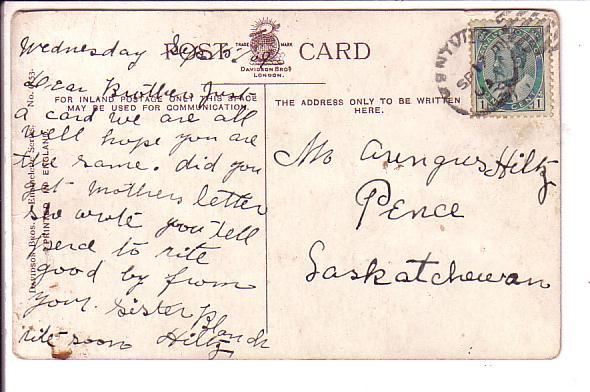 POST CARD
TRADE MARK
DAVIDSON BROS.
LONDON.
FOR INLAND POSTAGE ONLY THIS SPACE
MAY BE USED FOR COMMUNICATION.
THE ADDRESS ONLY TO BE WRITTEN
HERE.
Wednesday Sep
Dear Brother Just
a card we are all
well hope you are
the same. did you
get mothers letter
she wrote you tell
perd to rite
good by from
your sister Blanch
rite soon Hiltz
Mr Hiltz
Pence
Saskatchewan
Davidson Bros. Series. No.
PRINTED IN ENGLAND
1 CENT 1